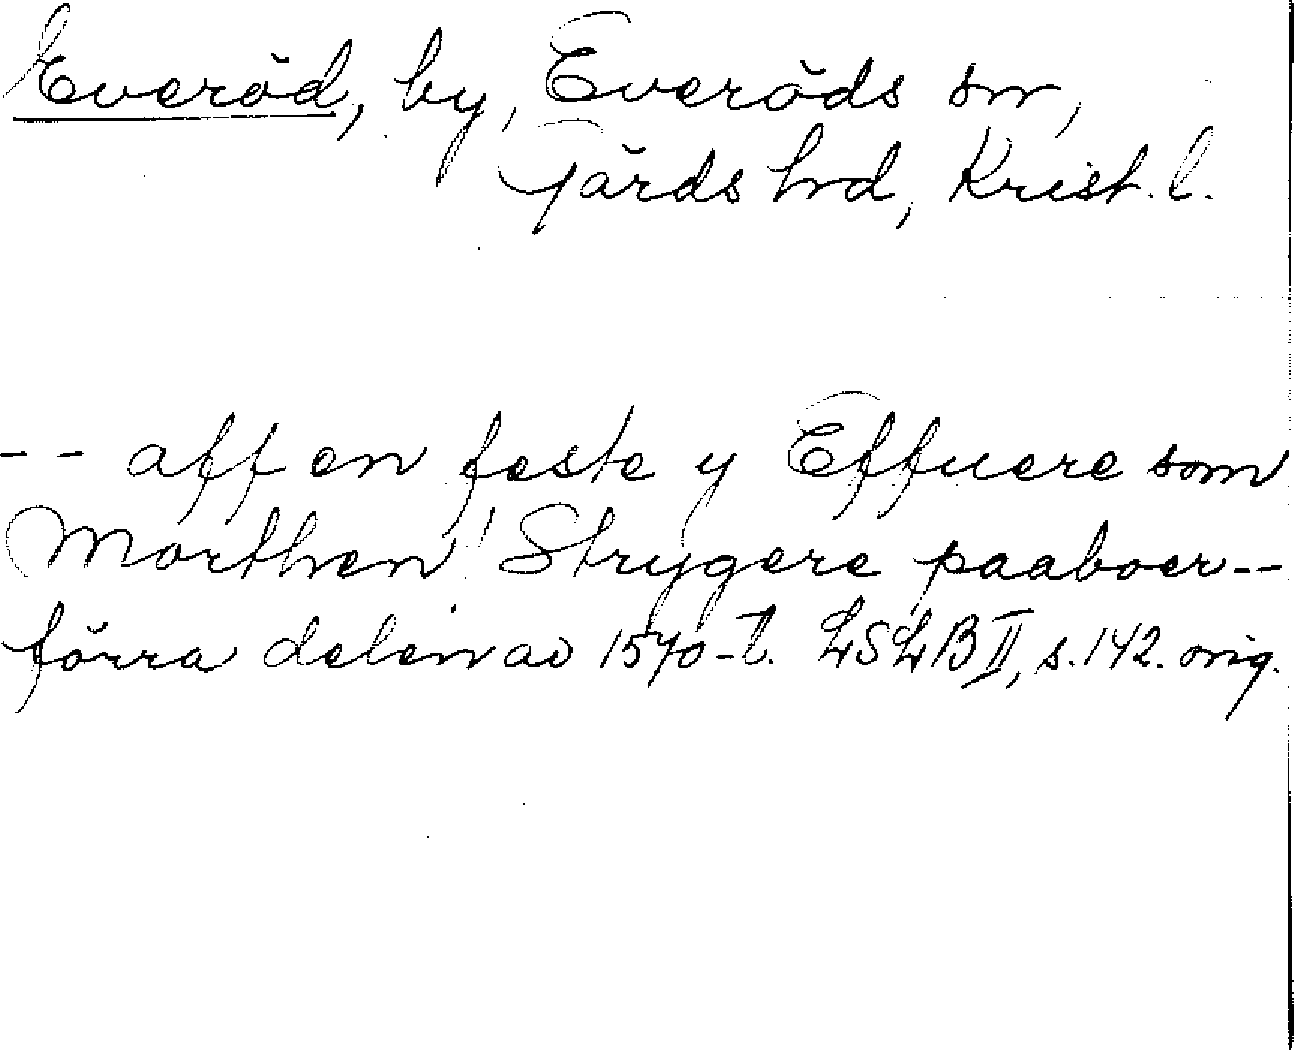 Everöd, by, Everöds sn,
Gärds hrd, Krist. l.
-- aff en feste y Effuere som
Morthen Strygere paaboer --
förra delen av 1570-t. LSLB II, s. 142. orig.